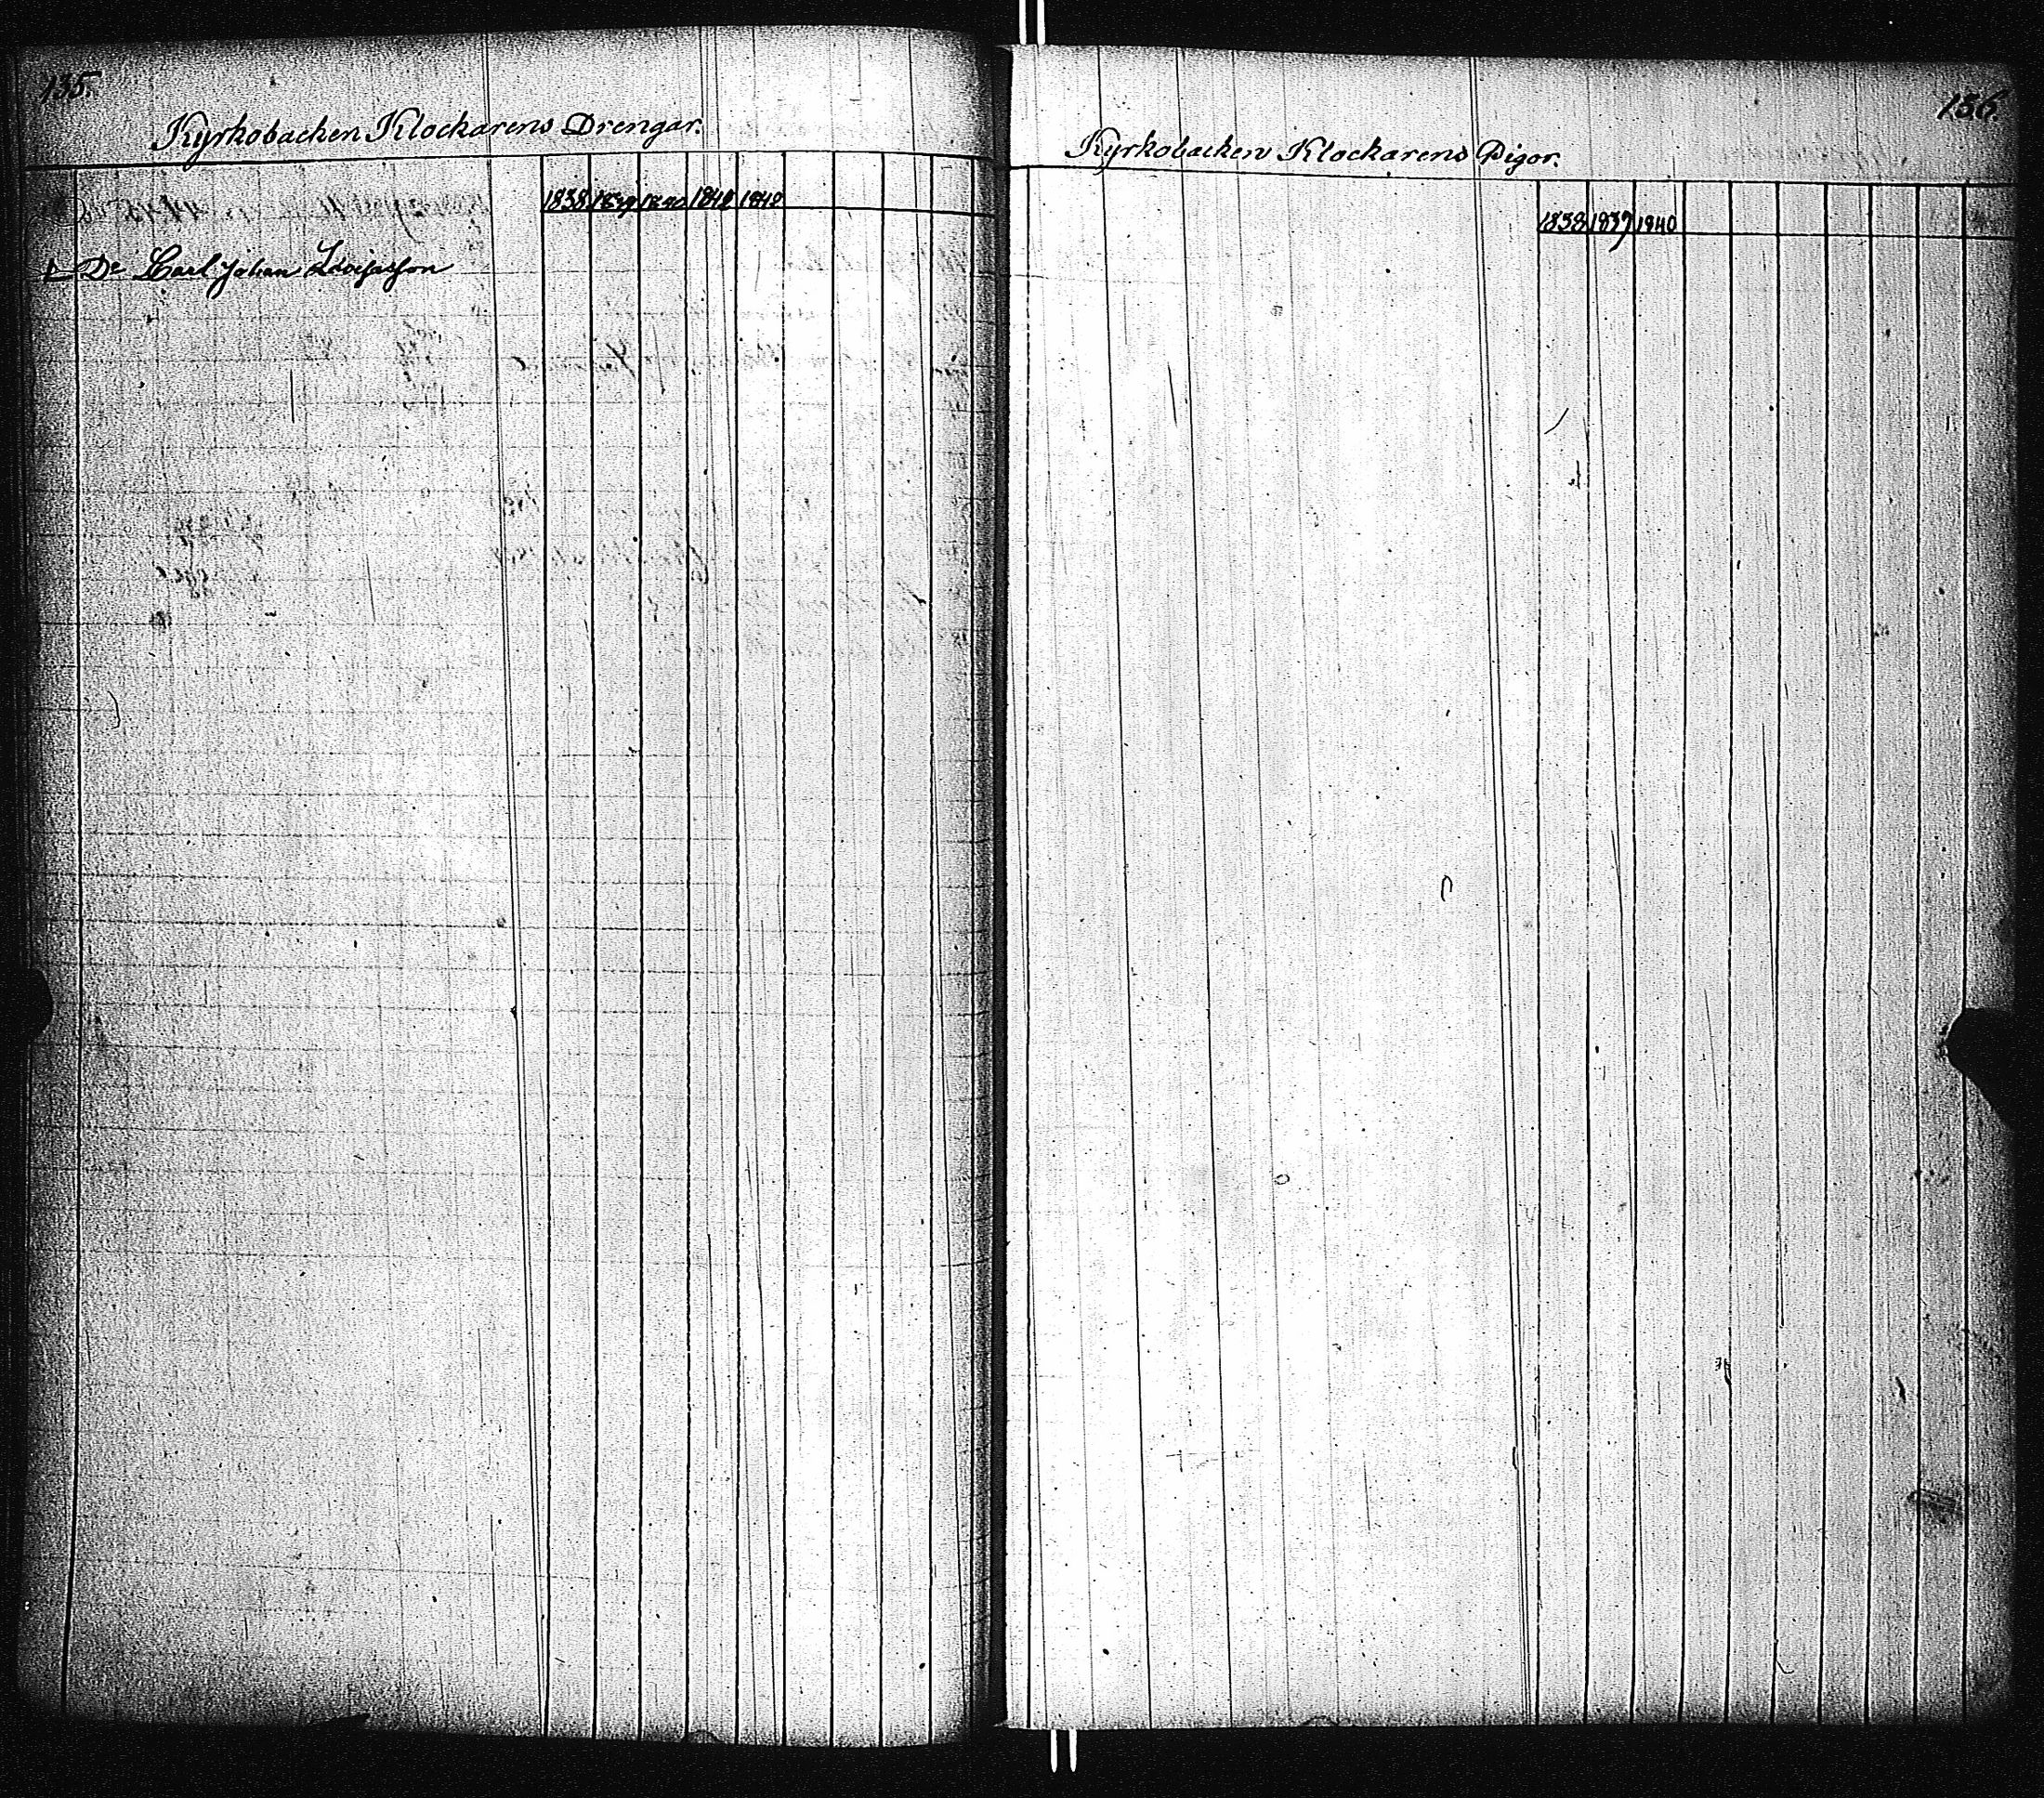 135.
Kyrkobacken Klockarens Drengar.
1838 1839 1840 1841 1842
1 De Carl Johan
136.
Kyrkobacken Klockarens Pigor.
1838 1839 1840